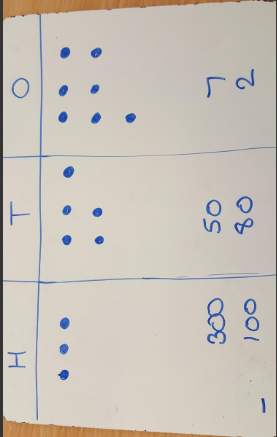 H T O
300 50 7
- 100 80 2